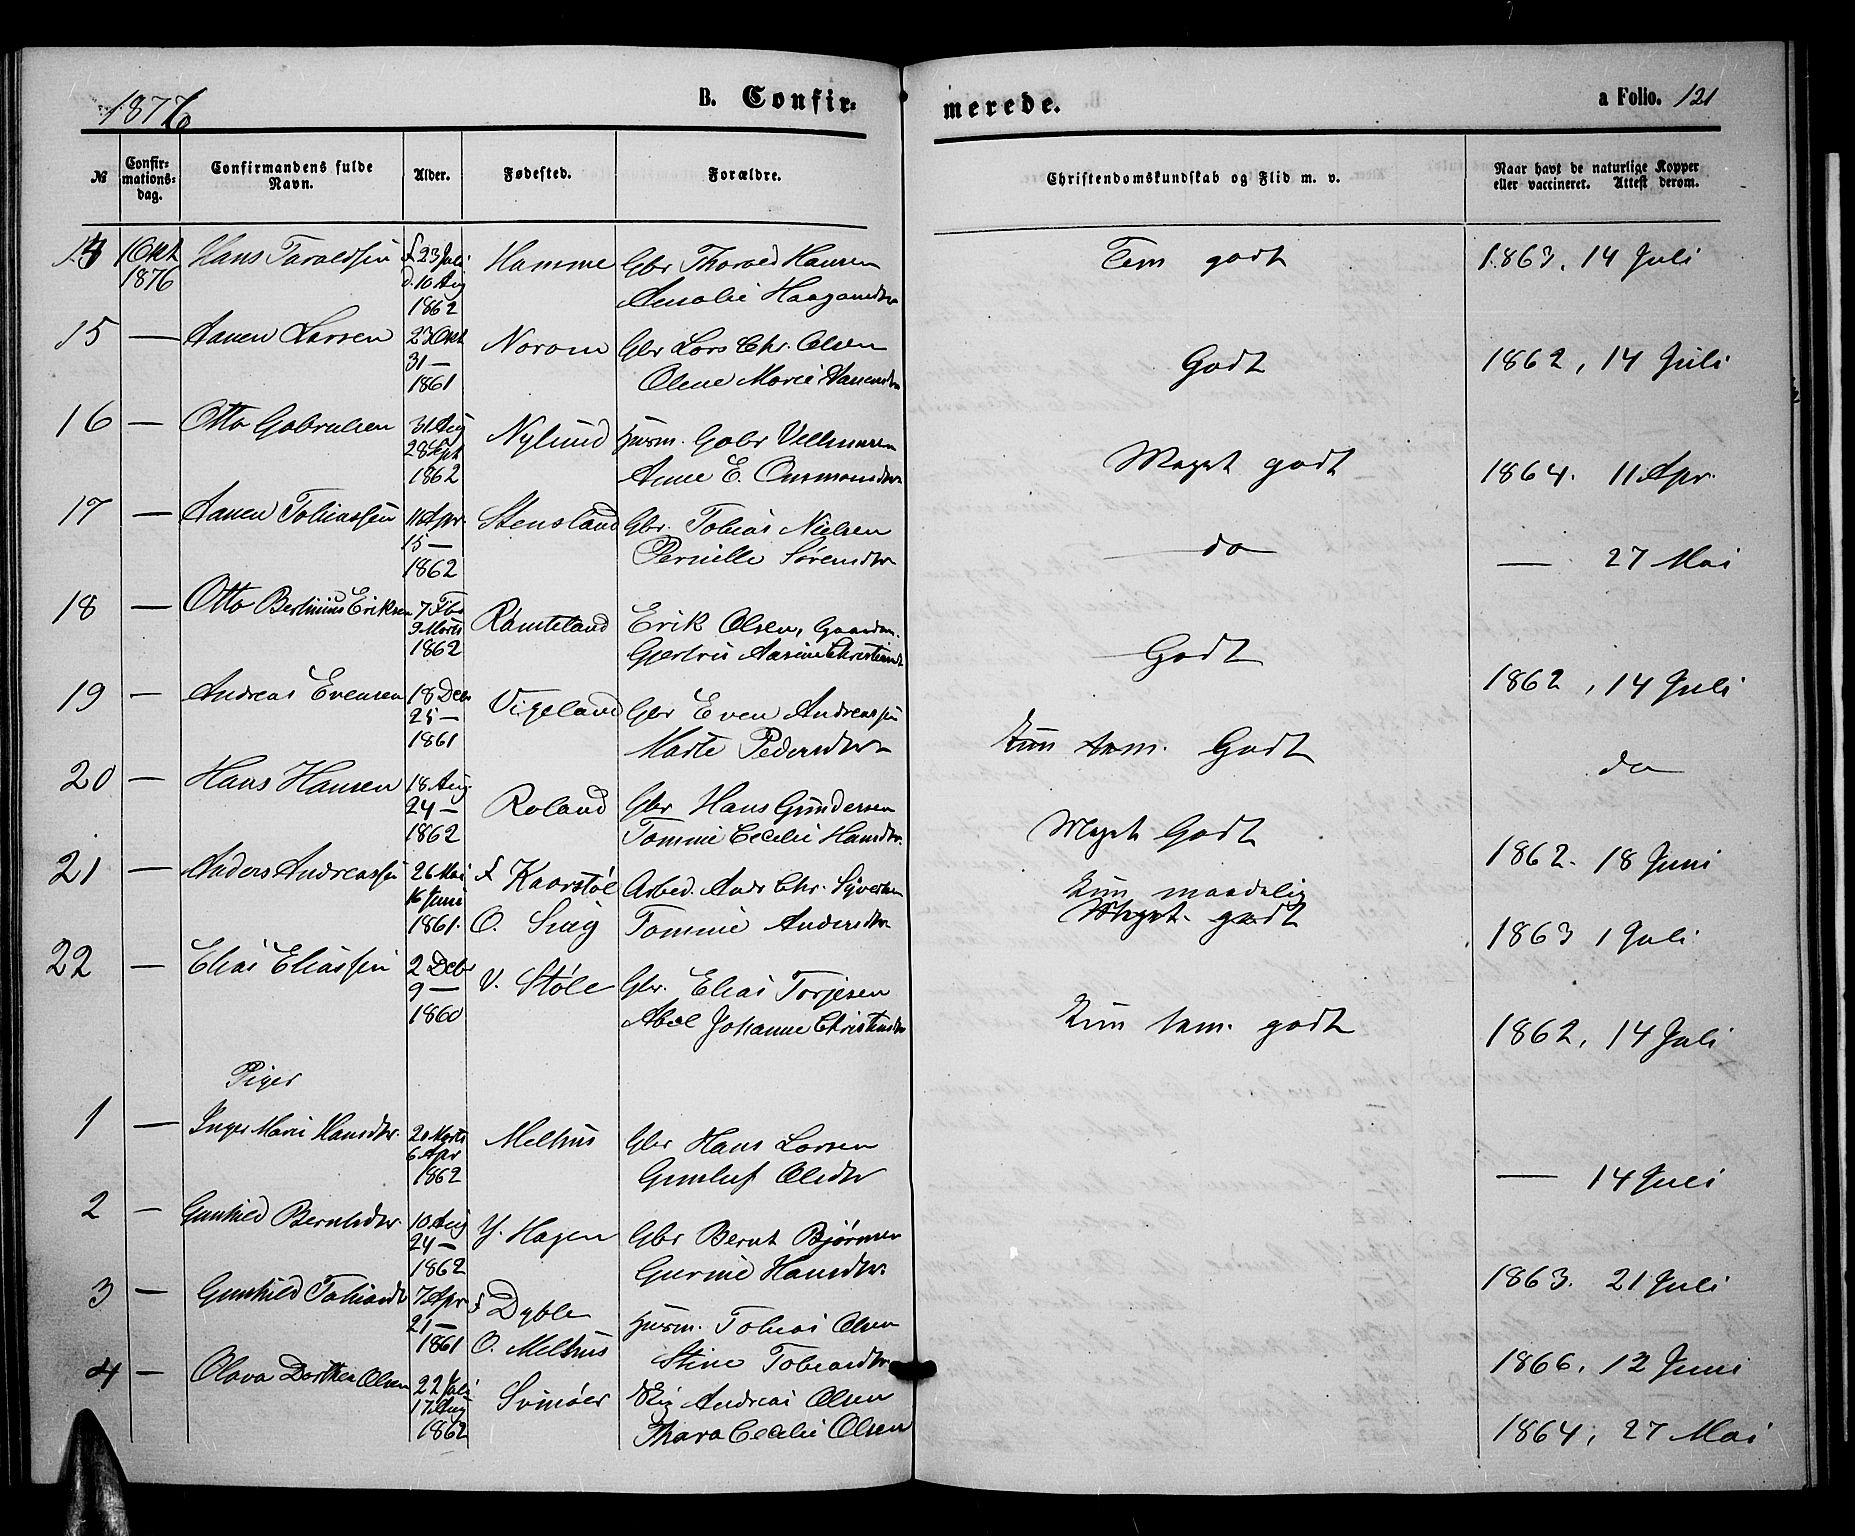 1876
B. Confir-
merede.
a Folio. 121
№
Confir-
mations-
dag.
Confirmandens fulde
Navn.
Alder.
Fødested.
Forældre.
Christendomskundskab og Flid m. v.
Naar havt de naturlige Kopper
eller vaccineret. Attest derom.
14 1 Okt Hans Taraldsen f 23 Juli Hamme Gbr Thorald Hansen Tem godt 1863. 14 Juli
1876 d. 10 Aug Amalie
1862
15 — Aanen Larsen 23 Okt Norom Gbr Lars Chr. Olsen Godt 1862, 14 Juli
31 — Olene Marie Aanensdtr
1861
16 — Otto Gabrielsen 31 Aug Nylund Husm. Gabr Vellumsen Meget godt 1864. 11 Apr.
28 Sept Anne E. Osmundsdtr
1862
17 — Aanen Tobiassen 11 Apr. Stensland Gbr. Tobias Nielsen do — 27 Mai
15 — Pernille Sørensdtr
1862
18 — Otto Bertinius Eriksen 7 Fbr Ramsland Erik Olsen, Gaardm. Godt 1862, 14 Juli
9 Marts Gjertru Aasine Christiansd
1862
19 — Andreas Evensen 18 Decbr Vigeland Gbr Even Andreassen kun tem. Godt do
25 — Marte Pedersdtr
1861
20 — Hans Hansen 18 Aug. Roland Gbr Hans Gundersen Meget Godt 1862. 18 Juni
24 — Tomine Cecilie Hansdtr.
1862
21 — Anders Andreassen 26 Mai f Kaarstøl Arbed. Ands Chr. Syversen kun maadelig
16 Juni Meget godt 1863 1 Juli
1861. O. Tomine Andersdtr
22 — Elias Eliassen 2 Decbr V. Støle Gbr. Elias Torjesen kun tem. godt 1862, 14 Juli
9 — Abel Johanne Christensdtr
1860
Piger
1 — Inger Marie Hansdtr. 20 Marts Melhus Gbr Hans Larsen — 14 Juli
6 Apr Gunluf Olsdtr
1862
2 — Gunhild Berntsdtr. 10 Aug Y. Hagen Gbr Bernt Bjørnsen 1863. 21 Juli
24 — Gurine Hansdtr
1862
3 — Gunhild Tobiasdtr 7 Apr f Dyble Husm. Tobias Olsen 1866, 12 Juni
21 — O. Melhus Stine Tobiasdtr
1861
4 — Olava Dorthea Olsen 22 Juli Svinøer Andreas Olsen 1864, 27 Mai
17 Aug Thara Cecilie Olsen
1862